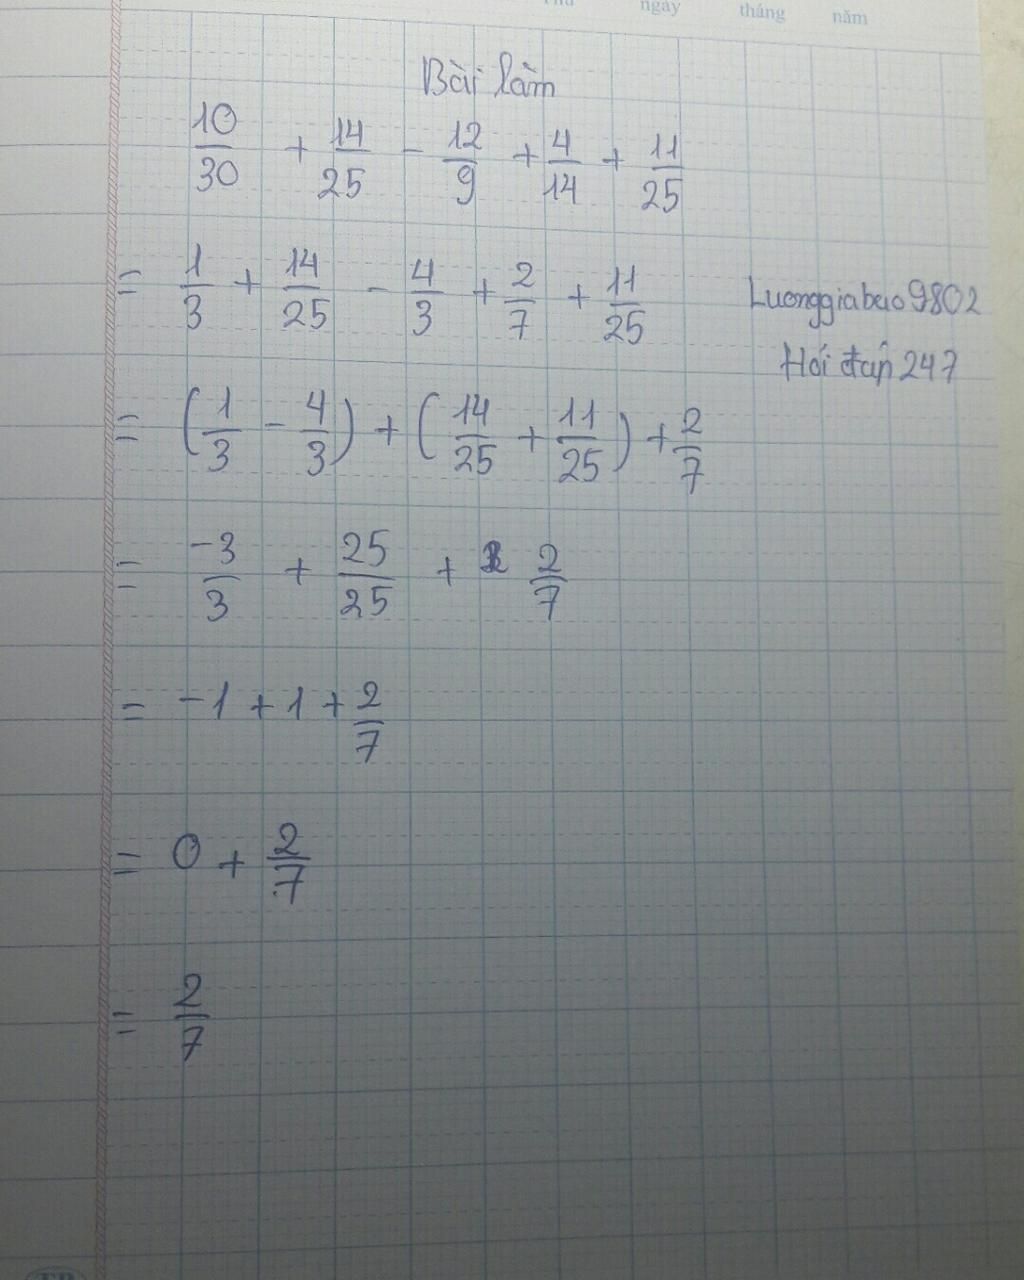 Thứ ngày tháng năm
Bài làm
10/30 + 14/25 - 12/9 + 4/14 + 11/25
= 1/3 + 14/25 - 4/3 + 2/7 + 11/25
Luonggiabao9802
Hỏi đáp 247
= (1/3 - 4/3) + (14/25 + 11/25) + 2/7
= -3/3 + 25/25 + 2/7
= -1 + 1 + 2/7
= 0 + 2/7
= 2/7